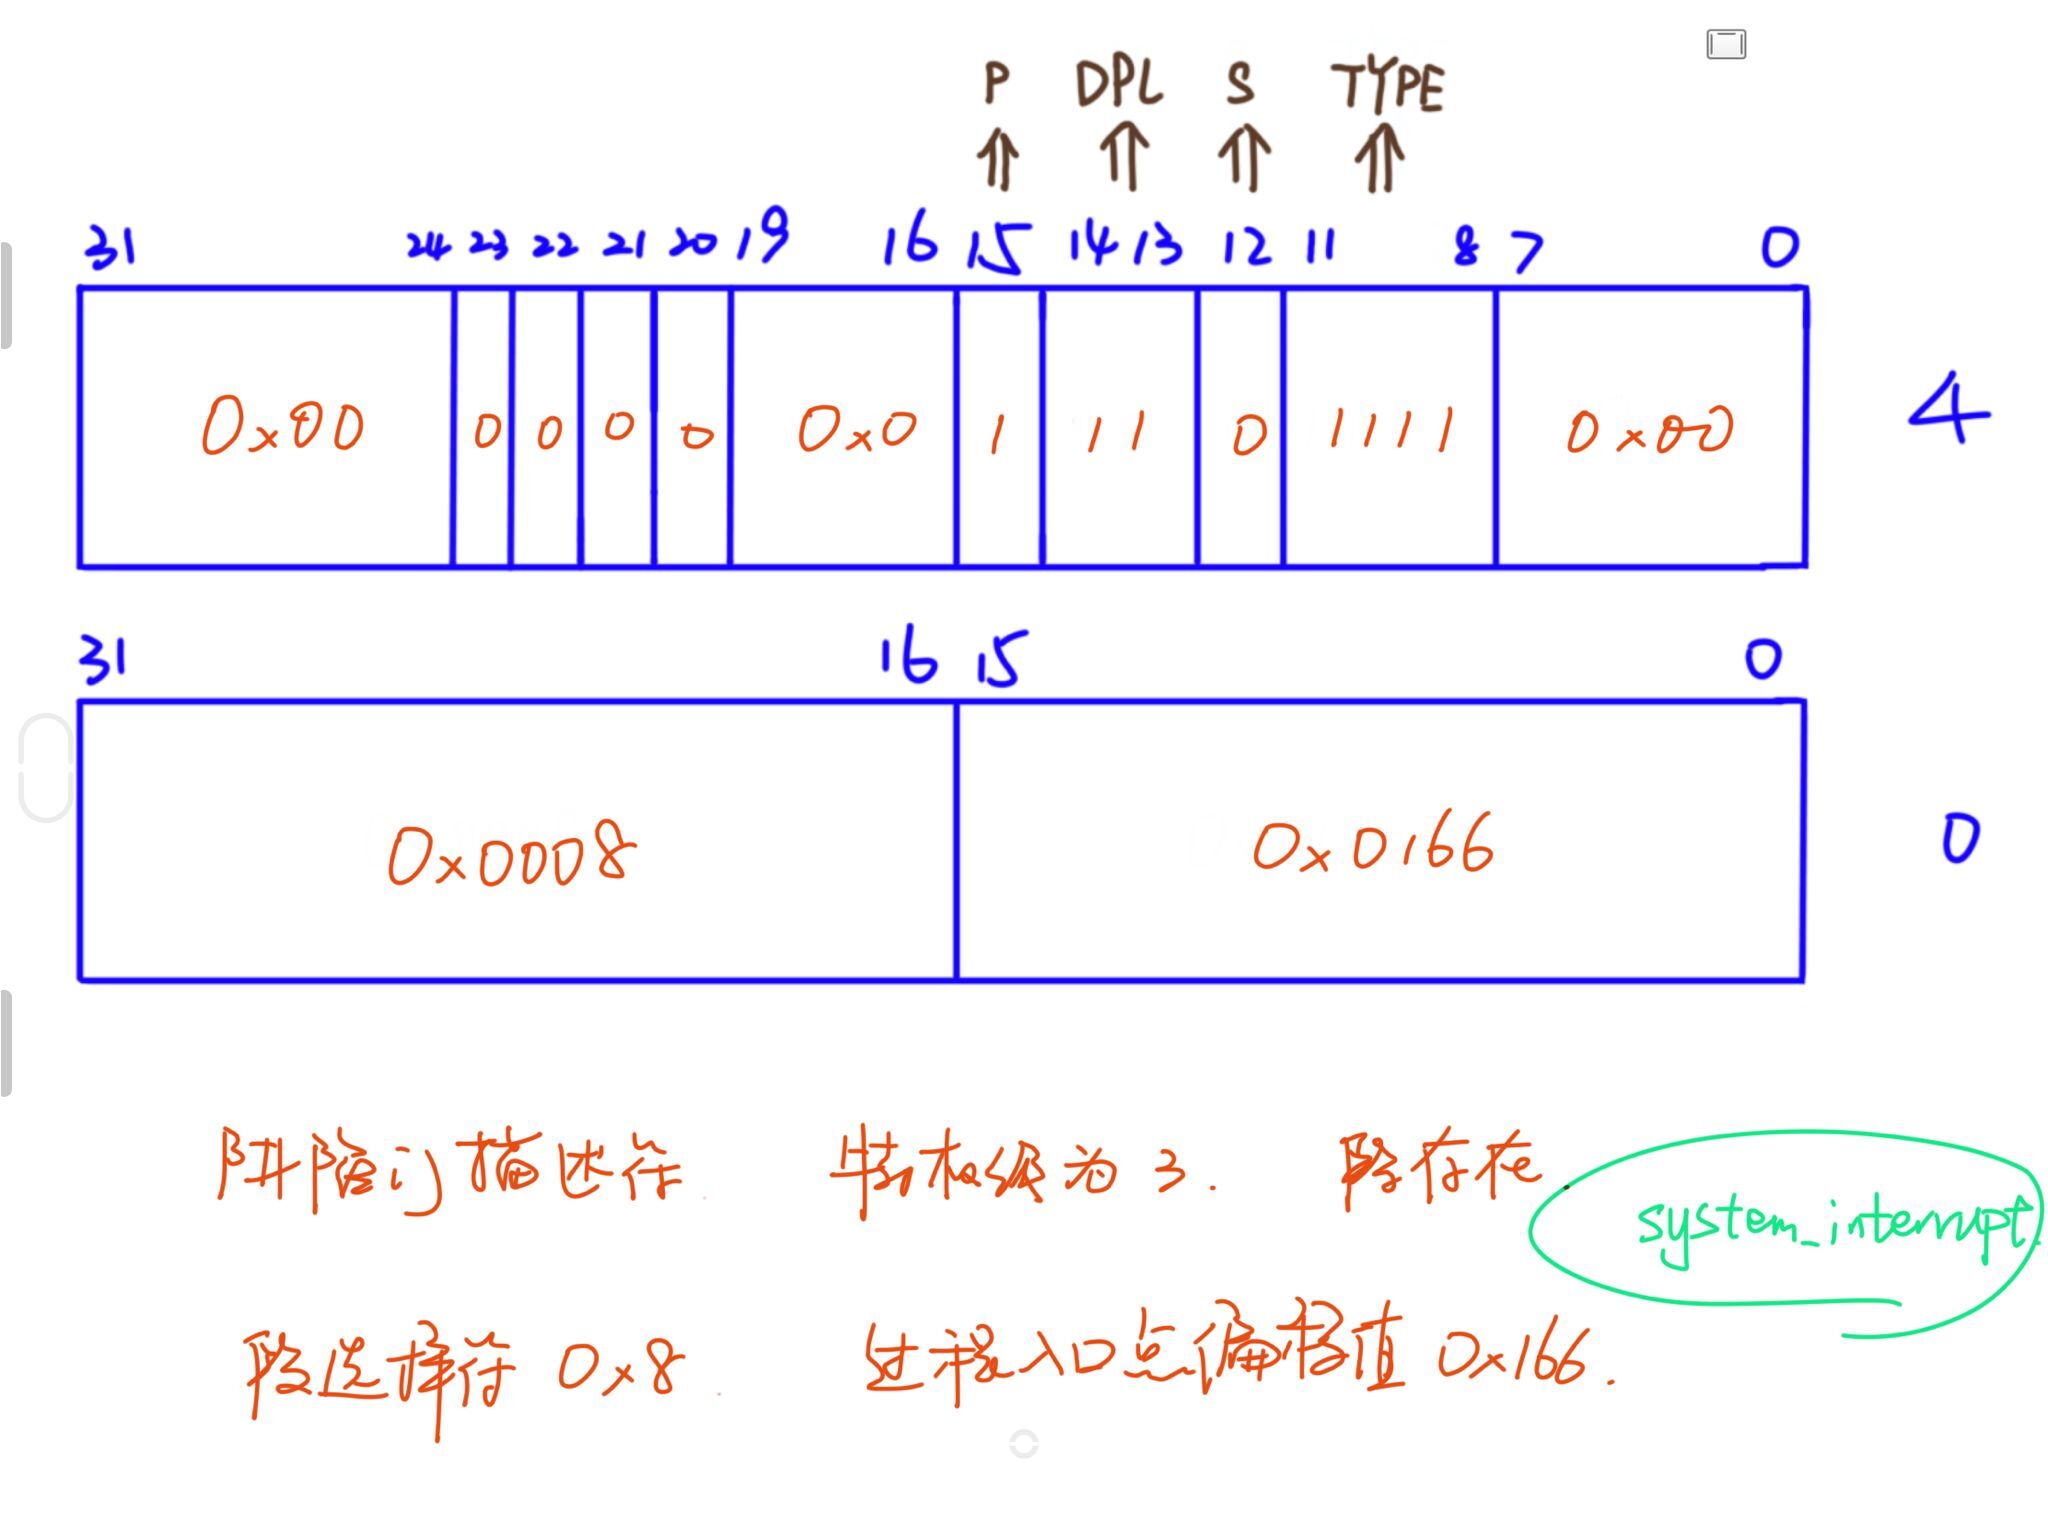 P DPL S TYPE
31 24 23 22 21 20 19 16 15 14 13 12 11 8 7 0
0x00 0 0 0 0 0x0 1 11 0 1111 0x00 4
31 16 15 0
0x0008 0x0166 0
陷阱门描述符. 特权级为3. 段存在
system_interrupt.
段选择符 0x8. 过程入口点偏移值 0x166.